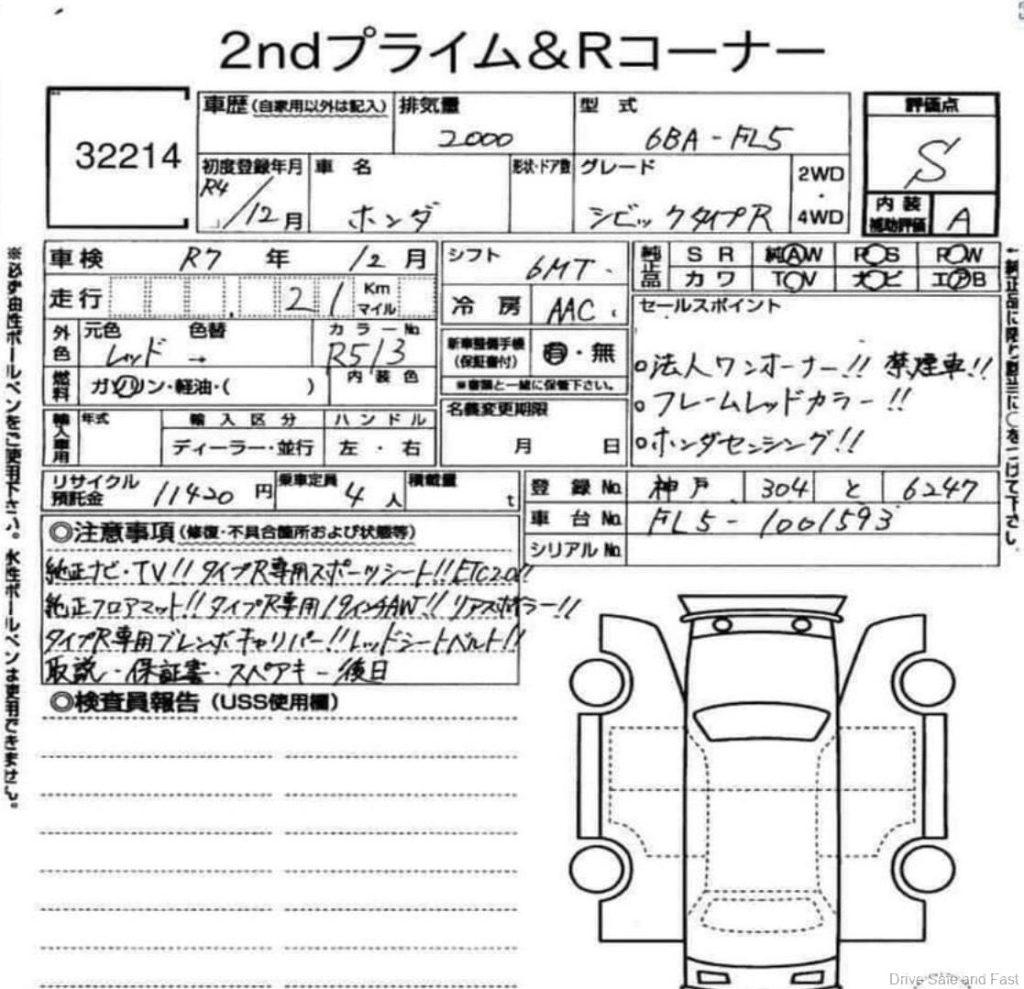 2ndプライム&Rコーナー
32214
車歴(自家用以外は記入) 排気量 型式 評価点
2000 6BA-FL5 S
初度登録年月 車名 形状・ドア数 グレード 2WD・4WD
R4/12月 ホンダ シビックタイプR
内装補助評価 A
車検 R7年 12月 シフト 6MT
純正品 SR 純AW P・S P・W
カワ T・V ナビ エアB
走行 21 Km マイル 冷房 AAC
セールスポイント
外色 元色 色替 カラーNo.
レッド → R513
新車整備手帳(保証書付) 有・無
※書類と一緒に保管下さい。
燃料 ガソリン・軽油・( ) 内装色
○法人ワンオーナー!! 禁煙車!!
○フレームレッドカラー!!
○ホンダセンシング!!
輸入車用 年式 輸入区分 ハンドル
ディーラー・並行 左・右
名義変更期限
月 日
リサイクル預託金 11420円 乗車定員 4人 積載量 t
登録No. 神戸 304 と 6247
車台No. FL5-1001593
シリアルNo.
◎注意事項(修復・不具合箇所および状態等)
純正ナビ・TV!! タイプR専用スポーツシート!! ETC2.0!!
純正フロアマット!! タイプR専用19インチAW!! リアスポイラー!!
タイプR専用ブレンボキャリパー!! レッドシートベルト!!
取説・保証書・スペアキー後日
◎検査員報告(USS使用欄)
※必ず油性ボールペンをご使用下さい。水性ボールペンは使用できません。
Drive Safe and Fast